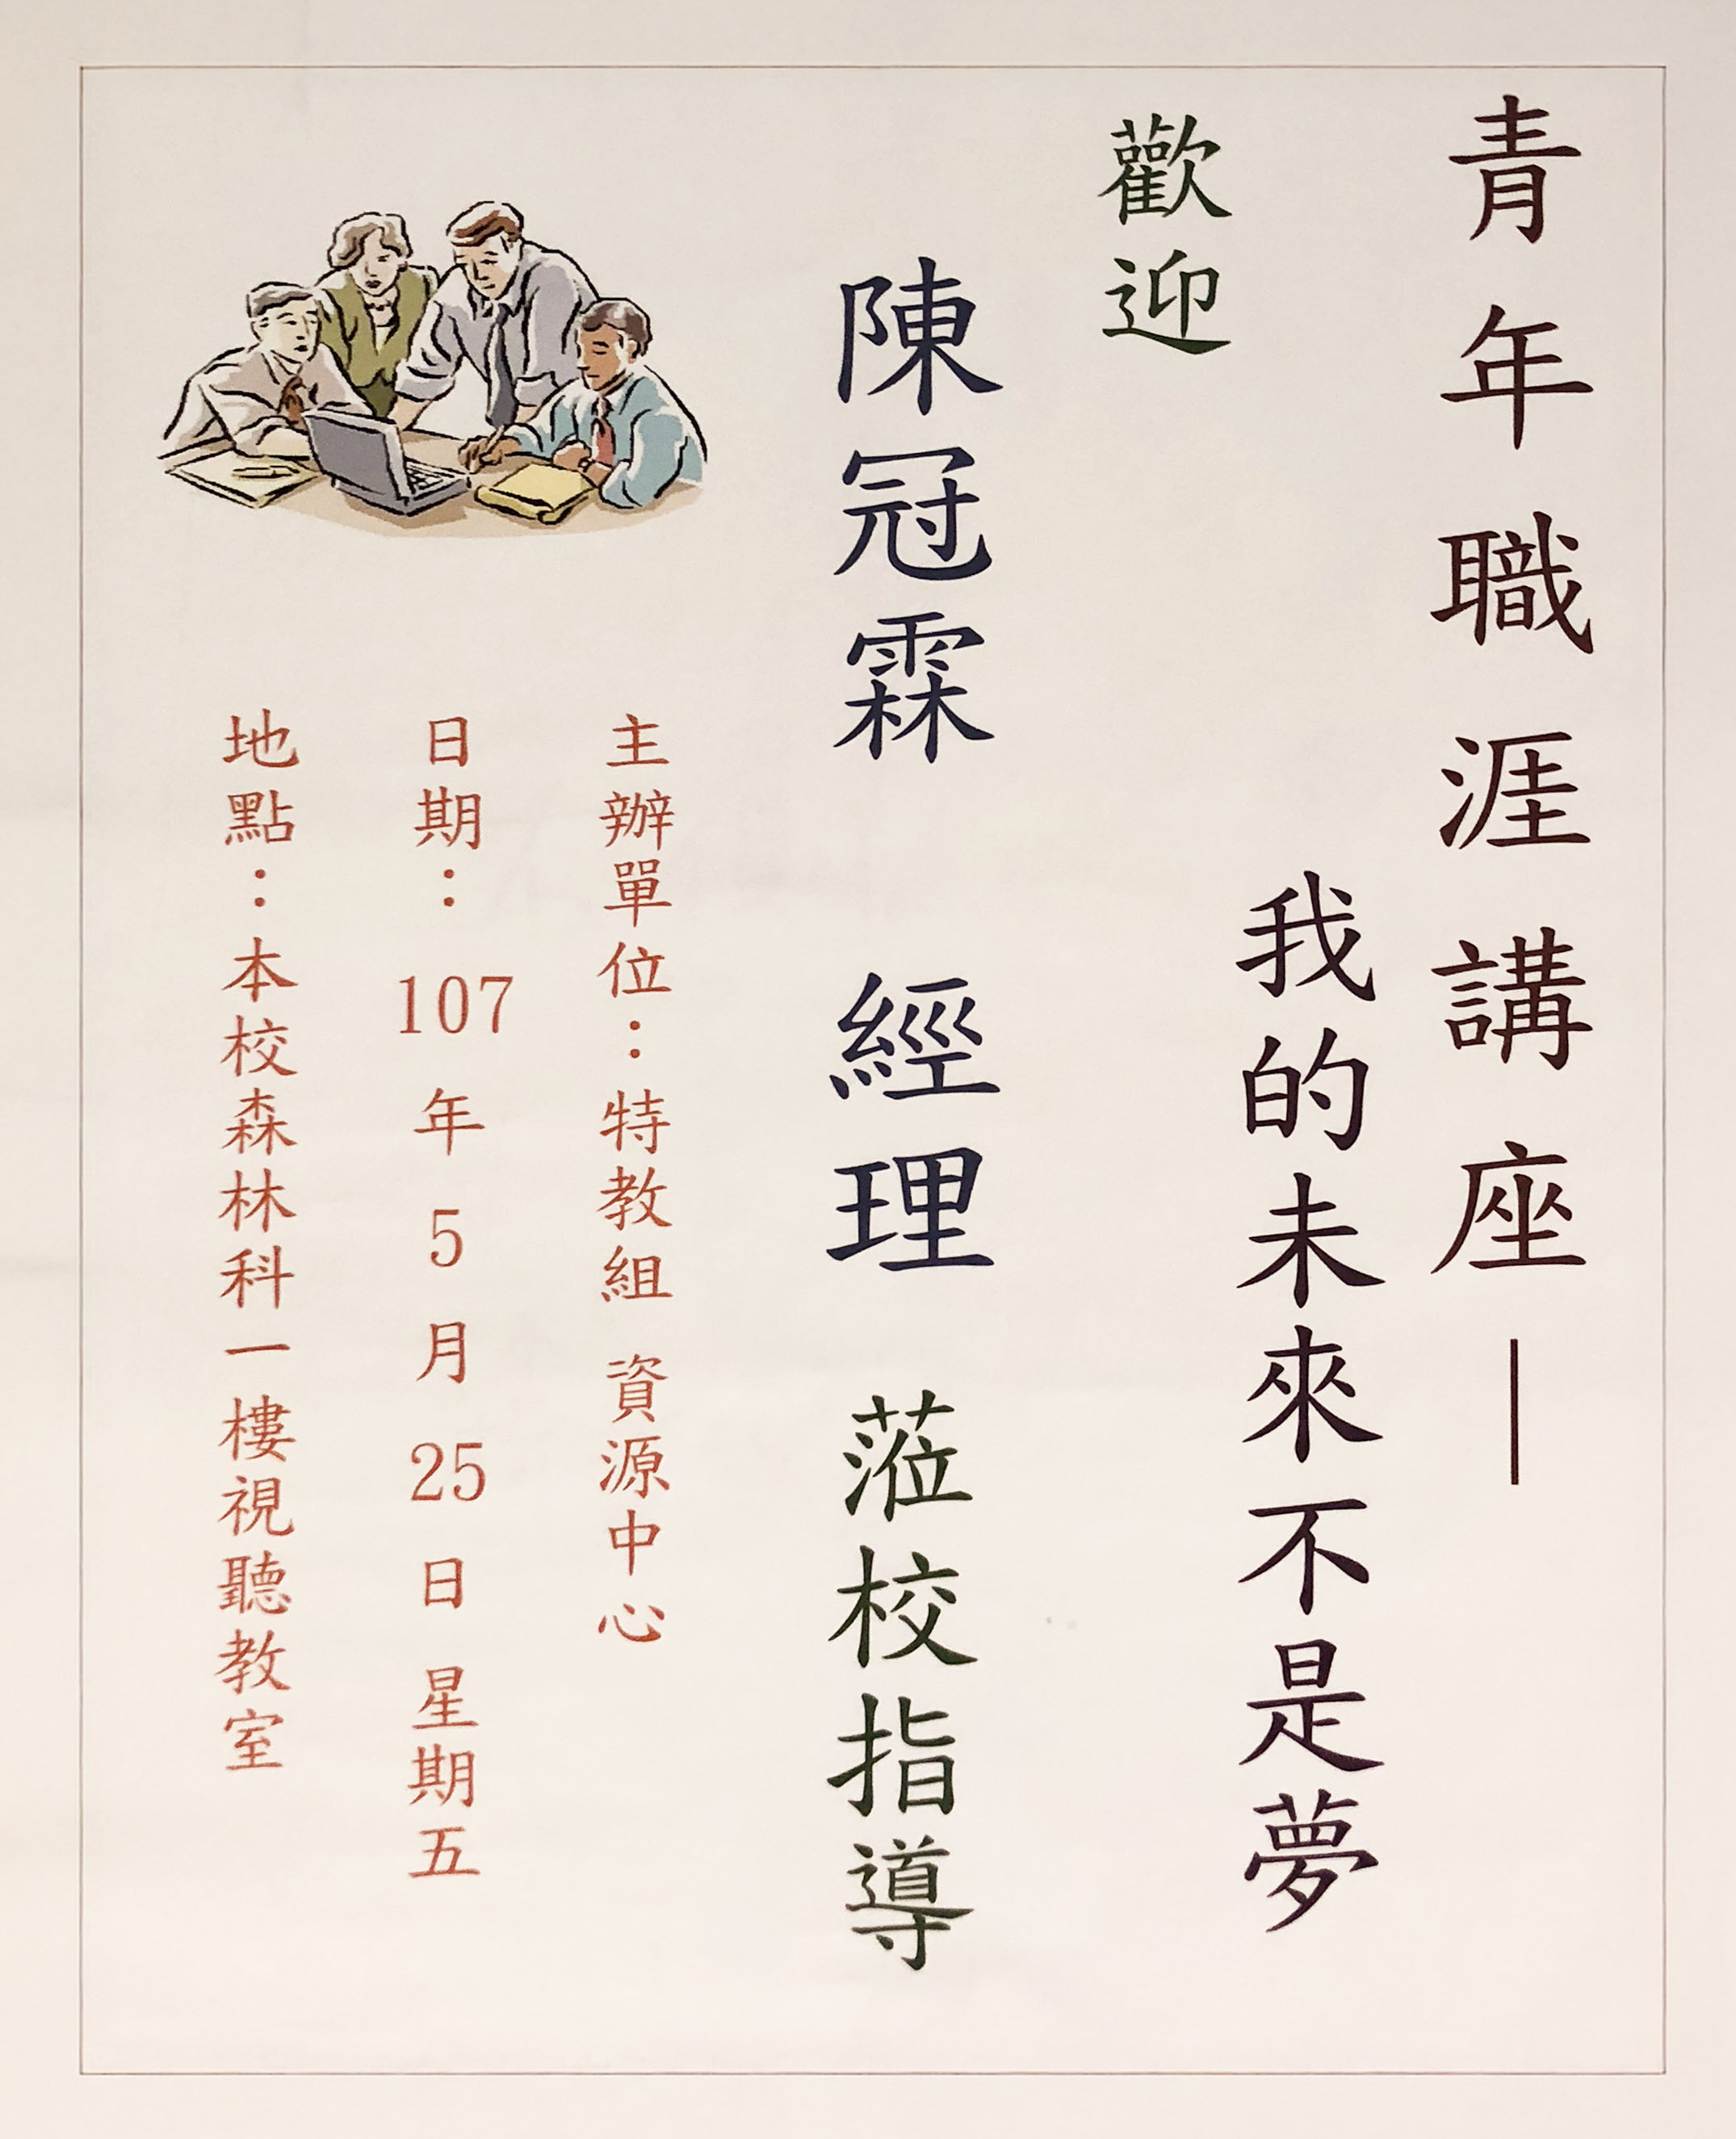 青年職涯講座—
我的未來不是夢
歡迎
陳冠霖 經理 蒞校指導
主辦單位：特教組 資源中心
日期：107年5月25日星期五
地點：本校森林科一樓視聽教室